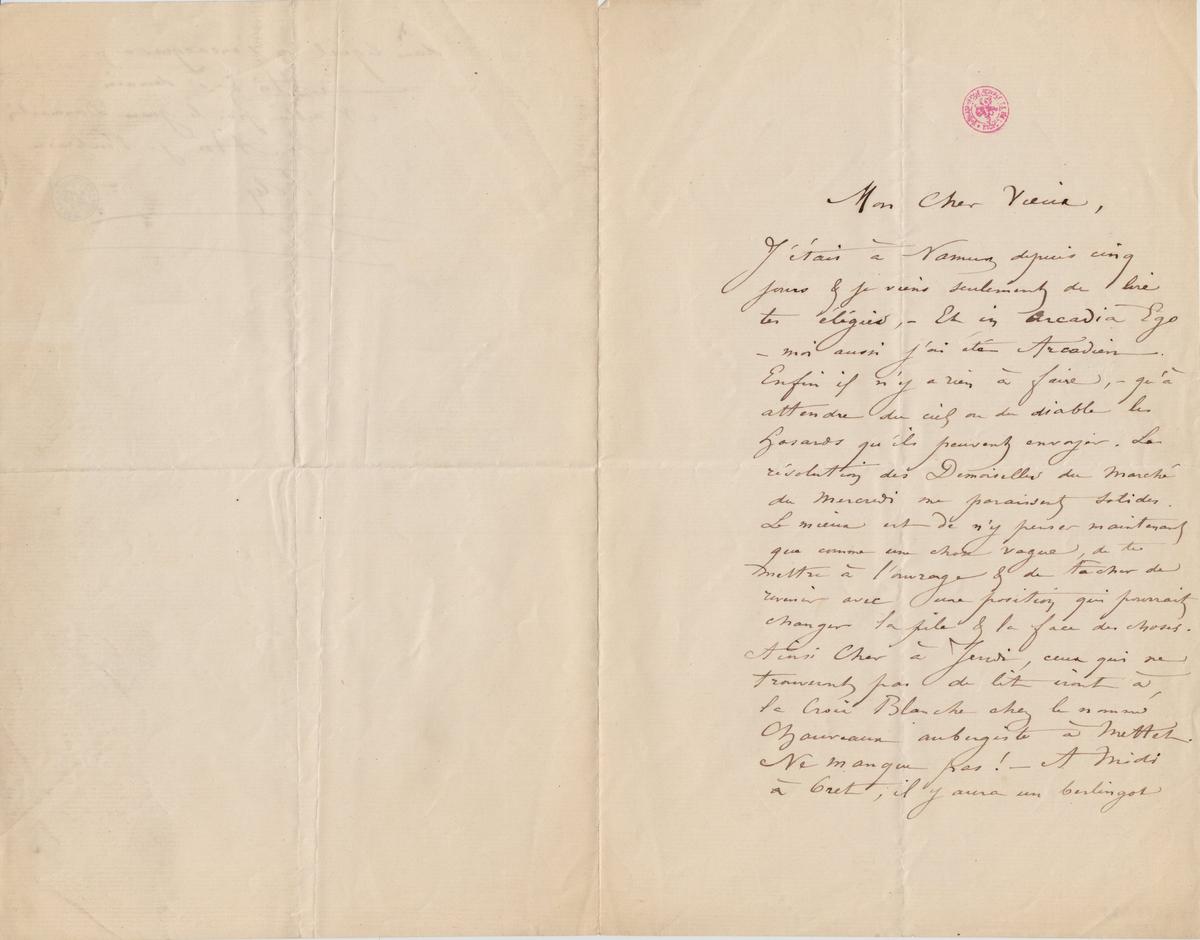 Mon Cher Vieux,
J'étais à Namur depuis cinq
jours & je viens seulement de lire
tes élégies, - Et in Arcadiâ Ego
- moi aussi j'ai été Arcadien.
Enfin il n'y a rien à faire, - qu'à
attendre du ciel ou du diable les
hasards qu'ils peuvent envoyer. Les
révolution des Demoiselles du Marché
du Mercredi me paraissent solides.
Le mieux est de n'y penser maintenant
que comme une chose vague, de te
mettre à l'ouvrage & de tacher de
revenir avec une position qui pourrait
changer la pile & la face des choses.
Ainsi Cher à Jeudi, ceux qui ne
trouveront pas de lit iront à
la Croix Blanche chez le nommé
Chauveaux aubergiste à Mettet.
Ne manque pas! - A Midi
à Oret, il y aura un berlingot